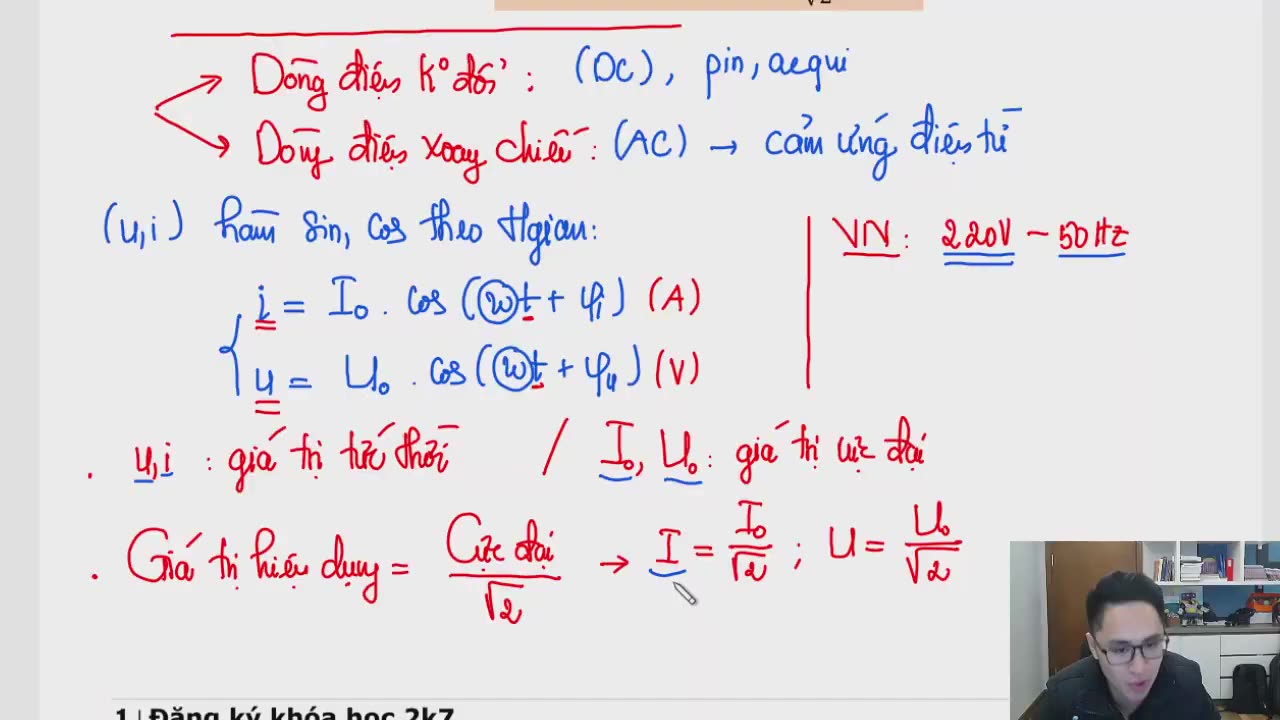 √2
Dòng điện kº đổi : (DC), pin, acqui
Dòng điện xoay chiều : (AC) → cảm ứng điện từ
(u,i) hàm sin, cos theo tgian:
VN : 220V ~ 50Hz
i = I₀ . cos (ωt + φᵢ) (A)
u = U₀ . cos (ωt + φᵤ) (V)
. u,i : giá trị tức thời / I₀, U₀ : giá trị cực đại
. Giá trị hiệu dụng = Cực đại / √2 → I = I₀/√2 ; U = U₀/√2
1 | Đăng ký khóa học 2k7